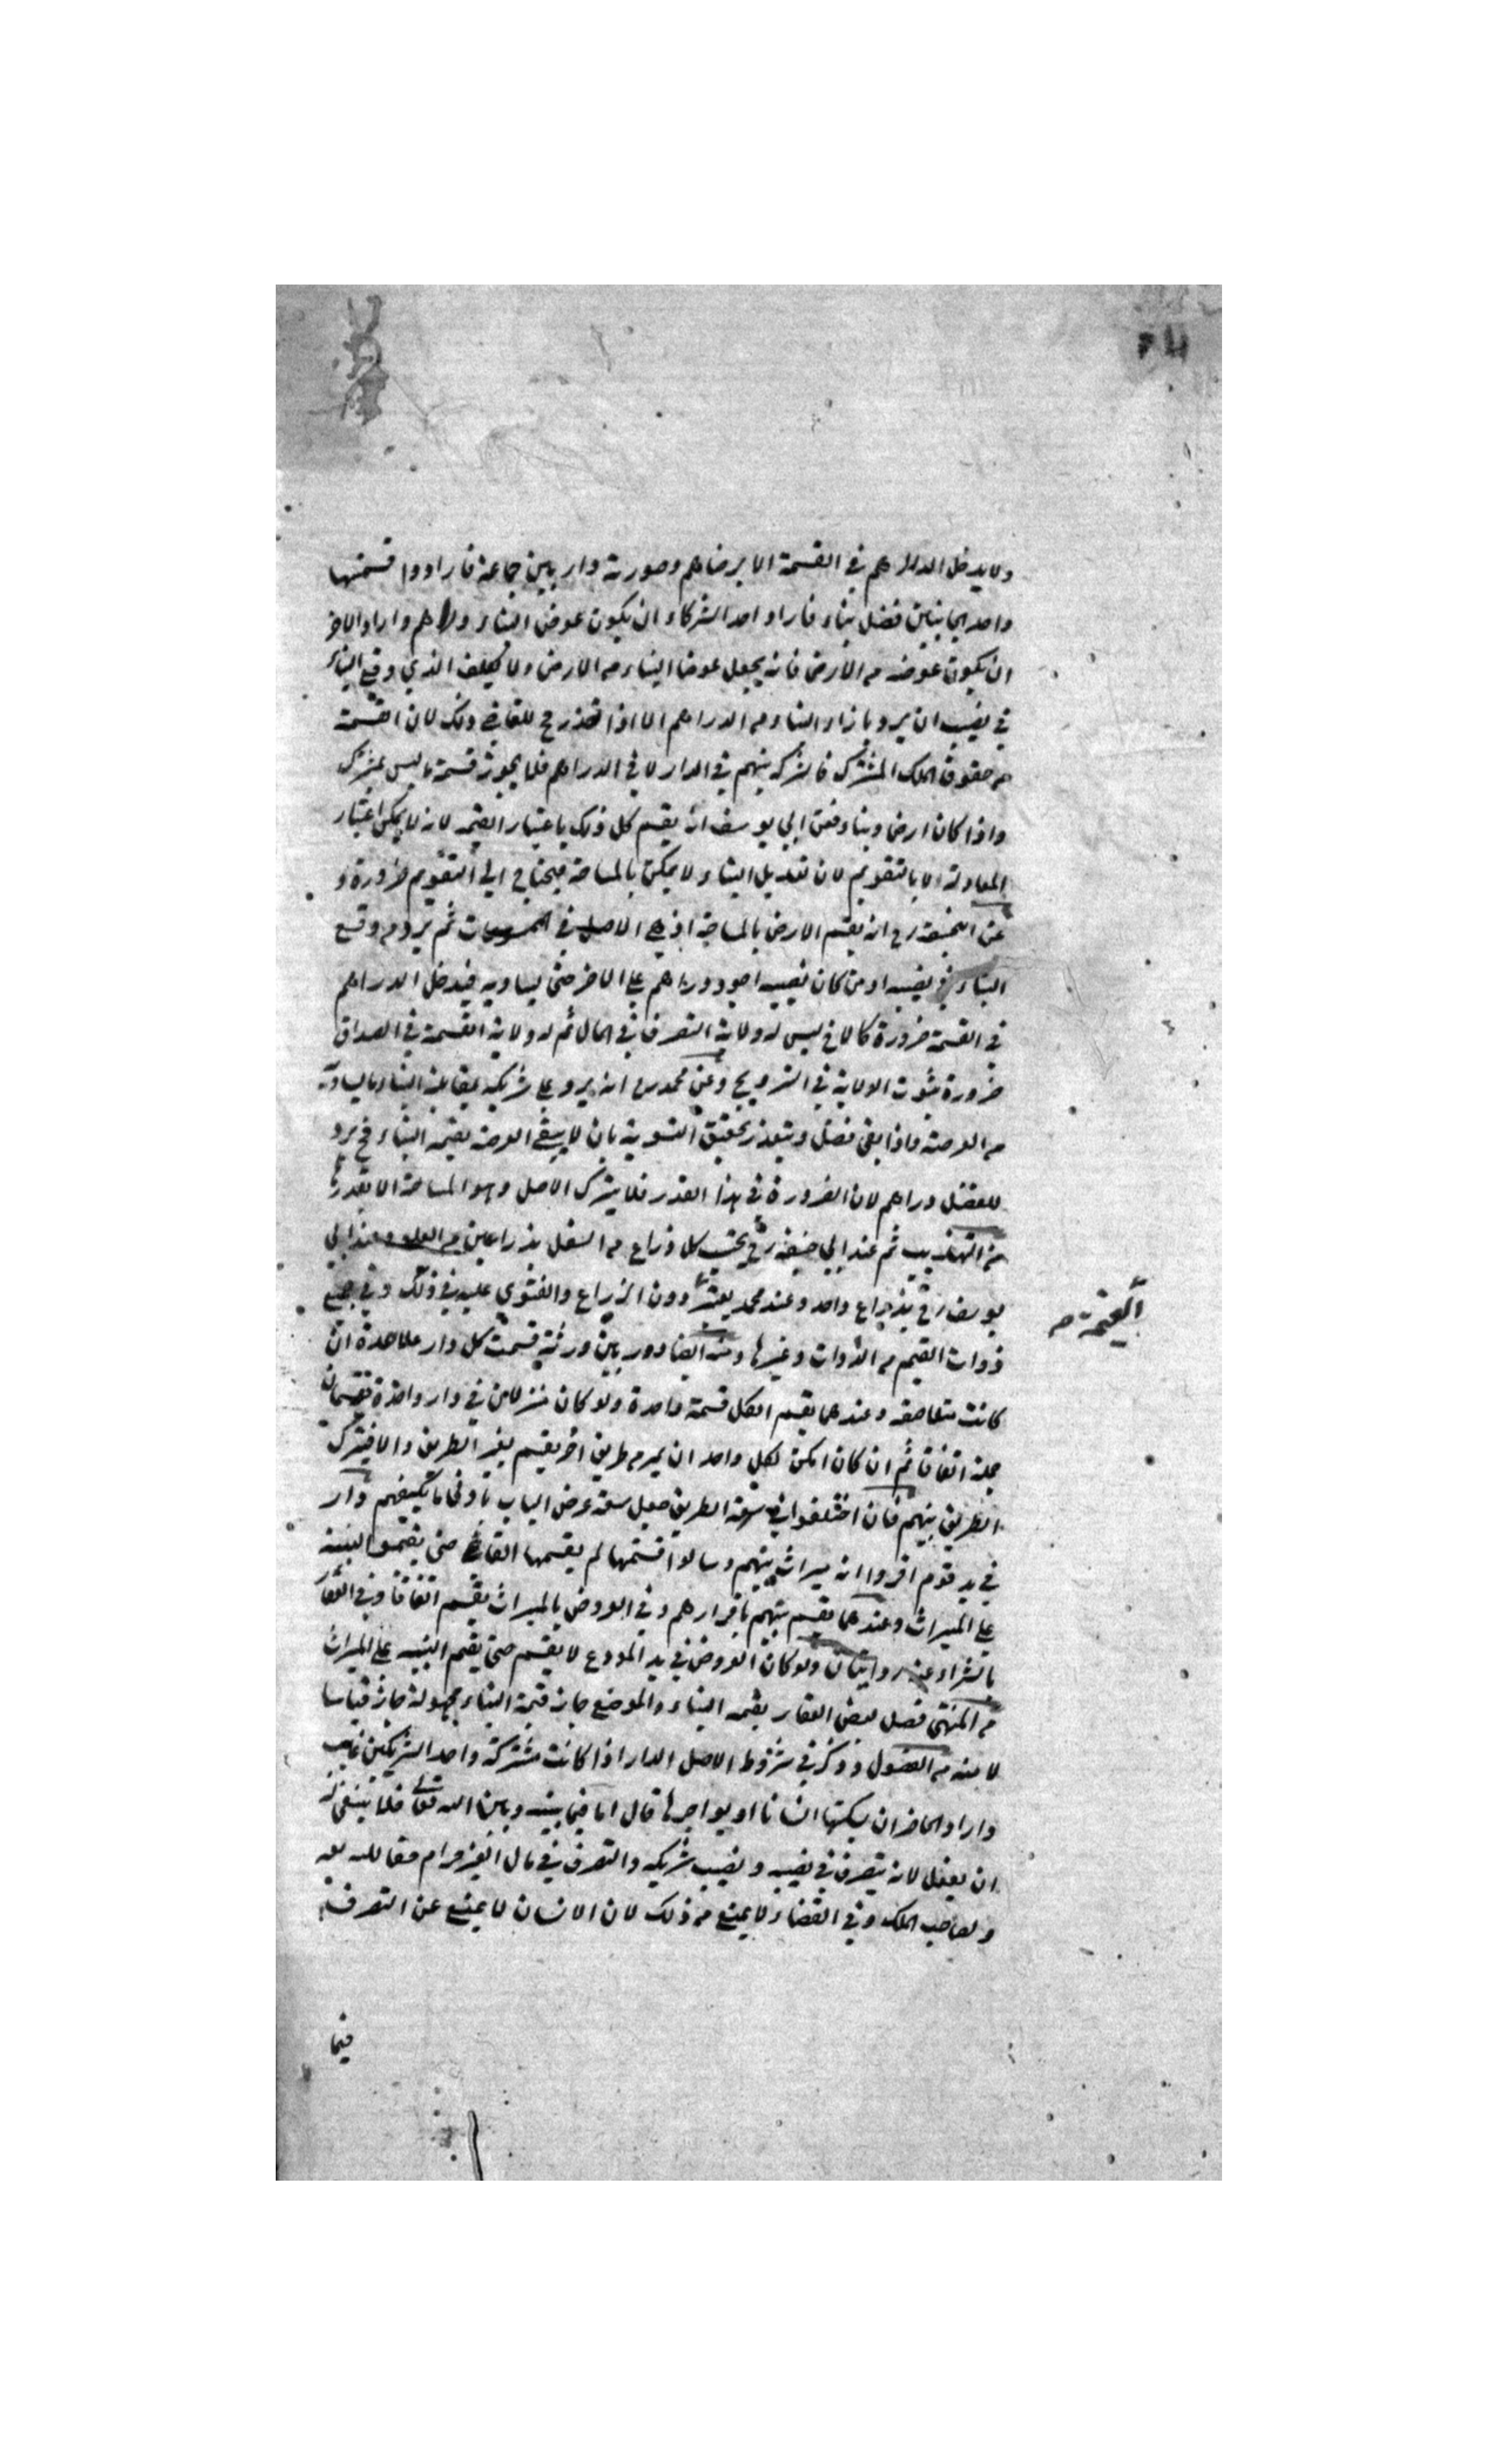 ولا يدخل الدراهم في القسمة الا برضاهم وصورته دار بين جماعة فارادوا قسمتها
واحد الجانبين فضل بناء فاراد احد الشركاء ان يكون عوض البناء دراهم واراد الاخر
ان يكون عوضه من الارض فانه يجعل عوض البناء من الارض ولا يكلف الذي وقع البناء
في نصيبه ان يرد بازاء البناء من الدراهم الا اذا تعذر فح للقاضي ذلك لان القسمة
من حقوق الملك المشترك فالشركة بينهم في الدار لا في الدراهم فلا يجوز قسمة ما ليس بمشترك
واذا كان ارض وبناء فعن ابي يوسف انه يقسم كل ذلك باعتبار القيمة لانه لا يمكن اعتبار
المعادلة الا بالتقويم لان تعديل البناء لا يمكن بالمساحة فيحتاج الى التقويم ضرورة و
عن ابحنيفة رح انه يقسم الارض بالمساحة اذ هي الاصل في الممسوحات ثم يرد من وقع
البناء في نصيبه او من كان نصيبه اجود دراهم على الاخر حتى يساويه فيدخل الدراهم
في القسمة ضرورة كالاخ ليس له ولاية التصرف في المال ثم له ولاية القسمة في الصداق
ضرورة ثبوت الولاية في التزويج وعن محمد رح انه يرد على شريكه بمقابلة البناء ما يساويه
من العرصة واذا بقي فضل وتعذر تحقيق التسوية بان لا يبقي العرصة بقيمة البناء فح يرد
للفضل دراهم لان الضرورة في هذا القدر فلا يترك الاصل وهو المساحة الا بقدرها
من التهذيب ثم عند ابي حنيفة رح يحتسب كل ذراع من السفل بذراعين من العلو وعند ابي
يوسف رح بذراع واحد وعند محمد يعتبر دون الذراع والفتوى عليه في ذلك وفي جميع
القيمة صح
ذوات القيم من الدواب وغيرها ومنه ايضا دور بين ورثة قسمت كل دار على حدة ان
كانت متلاصقة وعندهما يقسم الكل قسمة واحدة ولو كان منزلان في دار واحدة تقسمان
جملة اتفاقا ثم ان كان امكن لكل واحد ان يمر من طريق اخر يقسم بغير الطريق والا فيترك
الطريق بينهم فان اختلفوا في سعة الطريق جعل سعة عرض الباب بادنى ما يكفيهم دار
في يد قوم اقروا انه ميراث بينهم وسالوا قسمتها لم يقسمها القاضي حتى يقيموا البينة
على الميراث وعندهما يقسم بينهم باقرارهم وفي العروض بالميراث يقسم اتفاقا وفي العقار
بالشراء عنه روايتان ولو كان العروض في يد المودع لا يقسم حتى يقيم البينة على الميراث
من المنتقى فصل بعض العقار بقيمة البناء والموضع جاز قيمة البناء مجهولة جاز قياسا
لا منه من الفصول وذكر في شروط الاصل الدار اذا كانت مشتركة واحد الشريكين غايب
واراد الحاضر ان يسكنها انسانا او يواجرها قال اما فيما بينه وبين الله تعالى فلا ينبغي له
ان يفعل لانه يتصرف في نصيبه ونصيب شريكه والتصرف في مال الغير حرام حقا لله تع
ولصاحب الملك وفي القضاء لا يمنع من ذلك لان الانسان لا يمنع عن التصرف
فيما